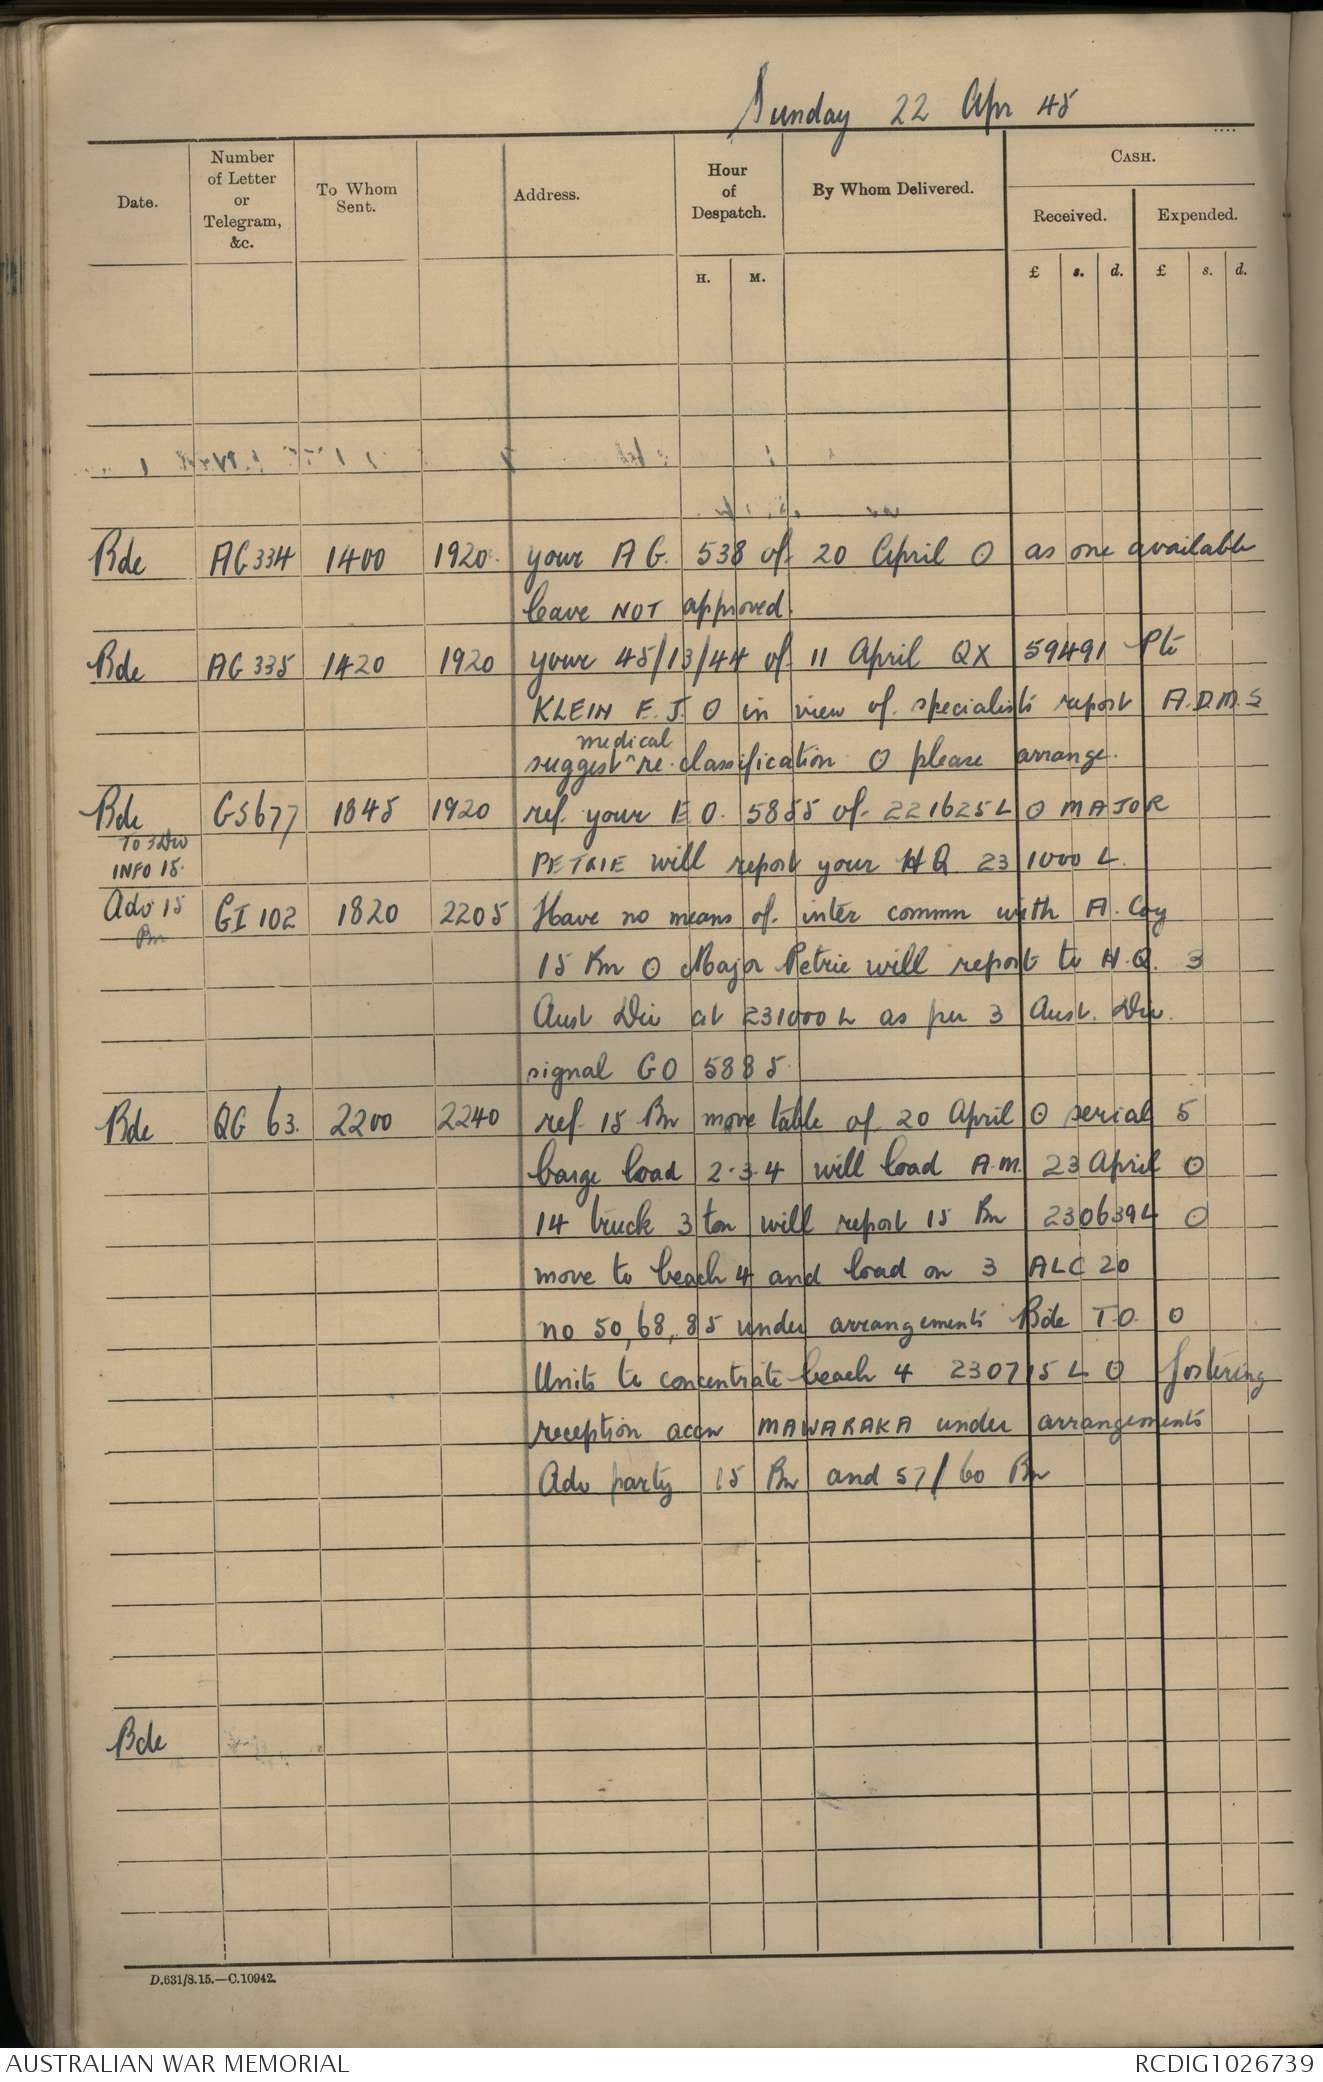 Sunday 22 Apr 45
Date.
Number of Letter or Telegram, &c.
To Whom Sent.
Address.
Hour of Despatch.
By Whom Delivered.
CASH.
Received.
Expended.
H. M. £ s. d. £ s. d.
Bde AG 334 1400 1920. your AG. 538 of 20 April O as one available
leave NOT approved.
Bde AG 335 1420 1920 your 45/13/44 of 11 April QX 59491 Pte
KLEIN E. J. O in view of specialists report A.D.M.S
suggest ^medical re-classification O please arrange.
Bde GS677 1845 1920 ref. your E O. 5855 of 221625L O MAJOR
To 3 Div
INFO 15. PETRIE will report your HQ 23 1000 L.
Adv 15 Bn GI 102 1820 2205 Have no means of inter commn with A. Coy
15 Bn O Major Petrie will report to H.Q. 3
Aust Div at 231000 L as per 3 Aust. Div.
signal GO 5885.
Bde QG 63. 2200 2240 ref. 15 Bn move table of 20 April O serial 5
barge load 2.3.4 will load A.M. 23 April O
14 truck 3 ton will report 15 Bn 230639L O
move to beach 4 and load on 3 ALC 20
no 50, 68, 85 under arrangements Bde T.O. O
Units to concentrate beach 4 230715 L O fostering
reception accn MAWARAKA under arrangements
Adv party 15 Bn and 57/60 Bn
Bde
D.631/8.15.—C.10942.
AUSTRALIAN WAR MEMORIAL
RCDIG1026739